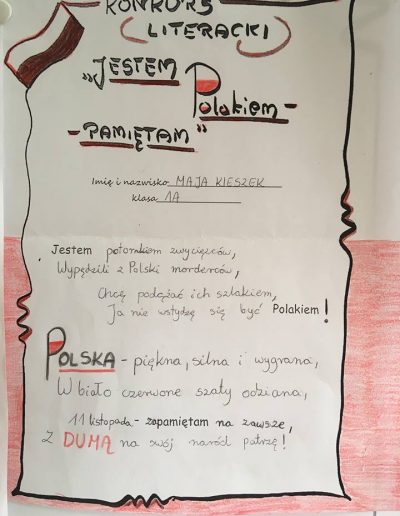 KONKURS
LITERACKI
„JESTEM
Polakiem -
- PAMIĘTAM"
Imię i nazwisko MAJA KIESZEK
klasa 1A
Jestem potomkiem zwycięzców,
Wypędzili z Polski morderców,
Chcę podążać ich szlakiem,
Ja nie wstydzę się być Polakiem!
POLSKA - piękna, silna i wygrana,
W biało czerwone szaty odziana,
11 listopada - zapamiętam na zawsze,
Z DUMĄ na swój naród patrzę!